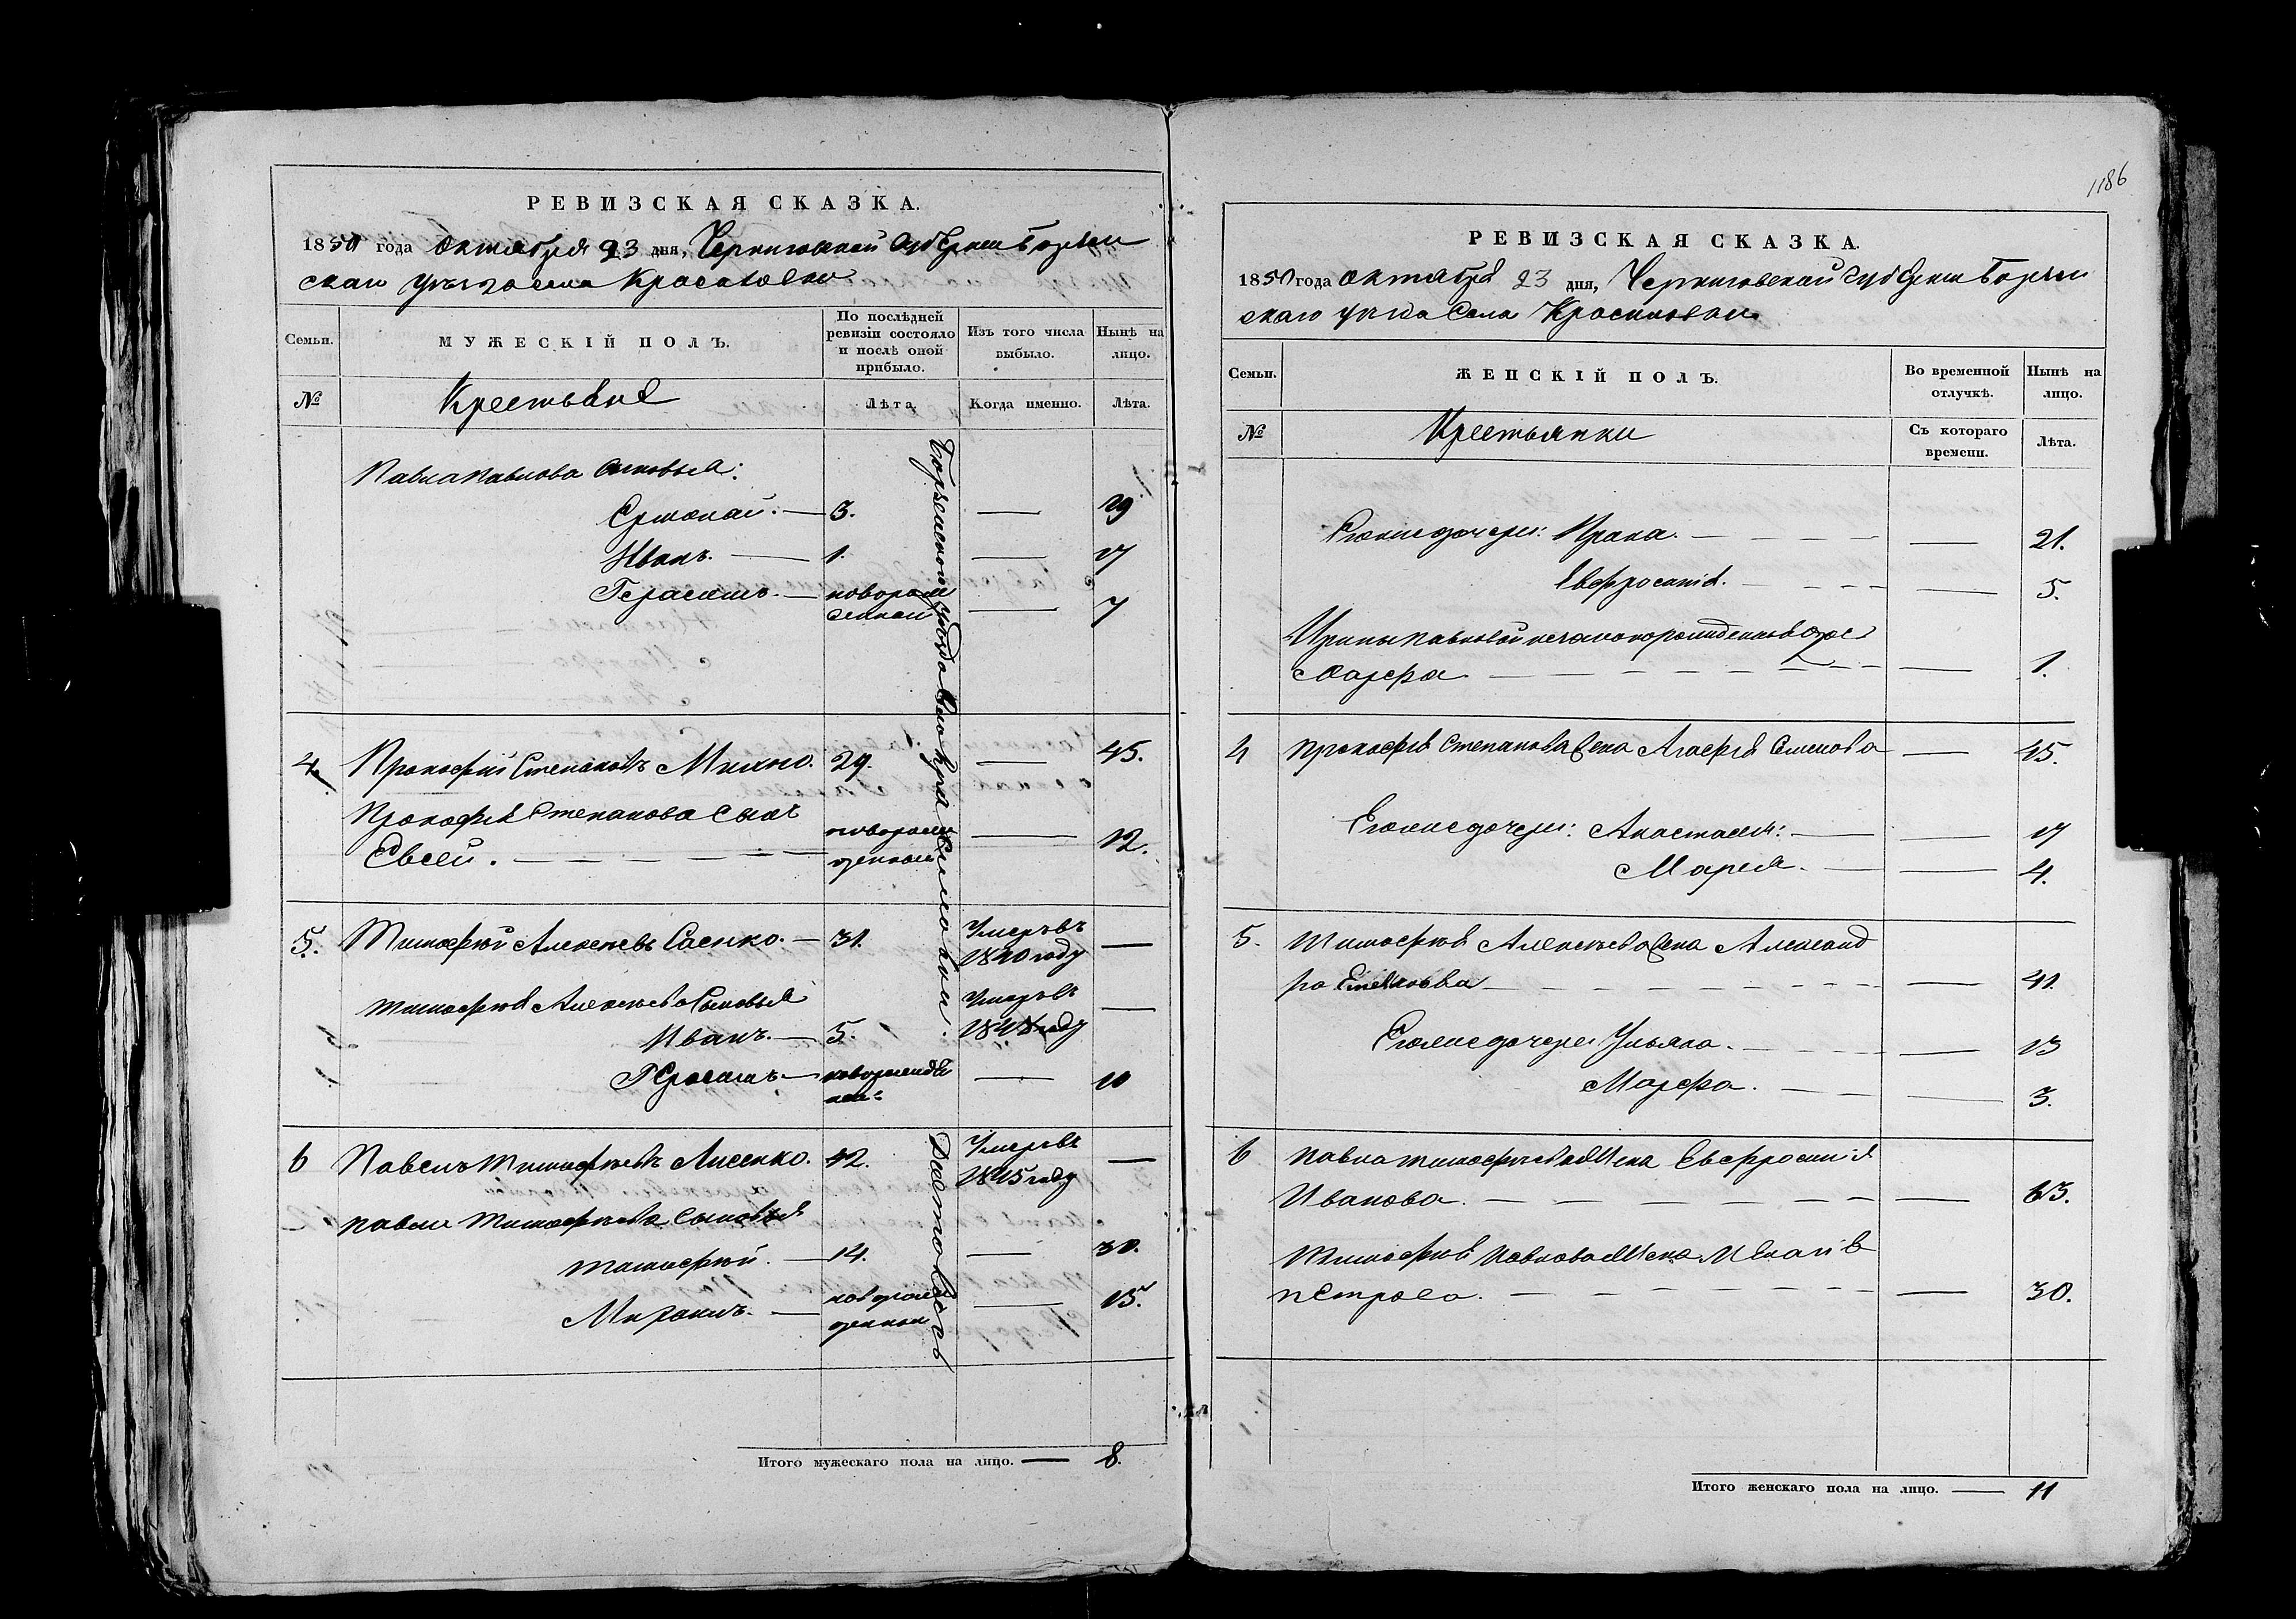 РЕВИЗСКАЯ СКАЗКА.
1850 года Октября 23 дня, Черниговской Губернии Борзен
скаго уѣзда села Красиловки
Семьи.
МУЖЕСКІЙ ПОЛЪ.
По послѣдней ревизіи состояло и послѣ оной прибыло.
Изъ того числа выбыло.
Нынѣ на лицо.
№
Крестьяне
Лѣта.
Когда именно.
Лѣта.
Павла Павлова сыновья:
Ермолай. — 3. — 19
Иванъ. — 1. — 17
Герасимъ. — новорож
денный — 7
4. Прокофій Степановъ Михно. 29. — 45.
Прокофія Степанова сынъ
Евсей. — новорож
денный — 12.
5. Тимофѣй Алексѣевъ Саенко. — 31. Умеръ въ
1840 году —
Тимофѣя Алексѣева сыновья
Иванъ. — 5. Умеръ въ
году —
Герасимъ — новорожден
ный — 10
6 Павелъ Тимофѣевъ Лисенко. 42. Умеръ въ
1845 году —
Павла Тимофѣева сыновья
Тимофѣй. — 14. — 30.
новорож
денный — 15.
Борзенского уѣзда село Красиловки.
Итого мужескаго пола на лицо. — 8.
1186
РЕВИЗСКАЯ СКАЗКА.
1850 года Октября 23 дня, Черниговской губерніи Борзен
скаго уѣзда Села Красиловки
Семьи.
ЖЕНСКІЙ ПОЛЪ.
Во временной отлучкѣ.
Нынѣ на лицо.
№
Крестьянки
Съ котораго времени.
Лѣта.
Его же дочери: Ирина. — 21.
Евфросинія. — 5.
Ирины Павловой незаконорожденная дочь
Марфа. — 1.
4 Прокофія Степанова жена Агафія Семенова — 45.
Его же дочери: Анастасія: — 17
Марія. — 4.
5. Тимофѣя Алексѣева жена Александ
ра — 41.
Его же дочери Ульяна. — 13
Марфа. — 3.
6 Павла Тимофѣева жена Евфросинія
Иванова. — 63.
Тимофѣя Павлова жена Меланія
Петрова. — 30.
Итого женскаго пола на лицо. — 11